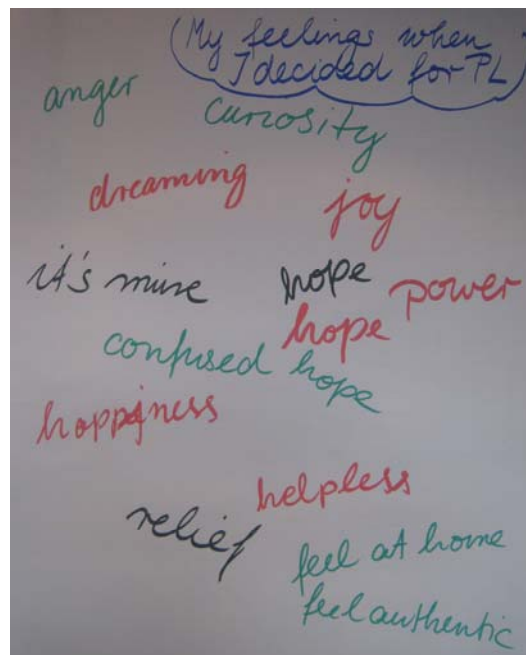 My feelings when
I decided for PL
anger
curiosity
dreaming
joy
it's mine
hope
power
hope
confused
hope
happiness
helpless
relief
feel at home
feel authentic